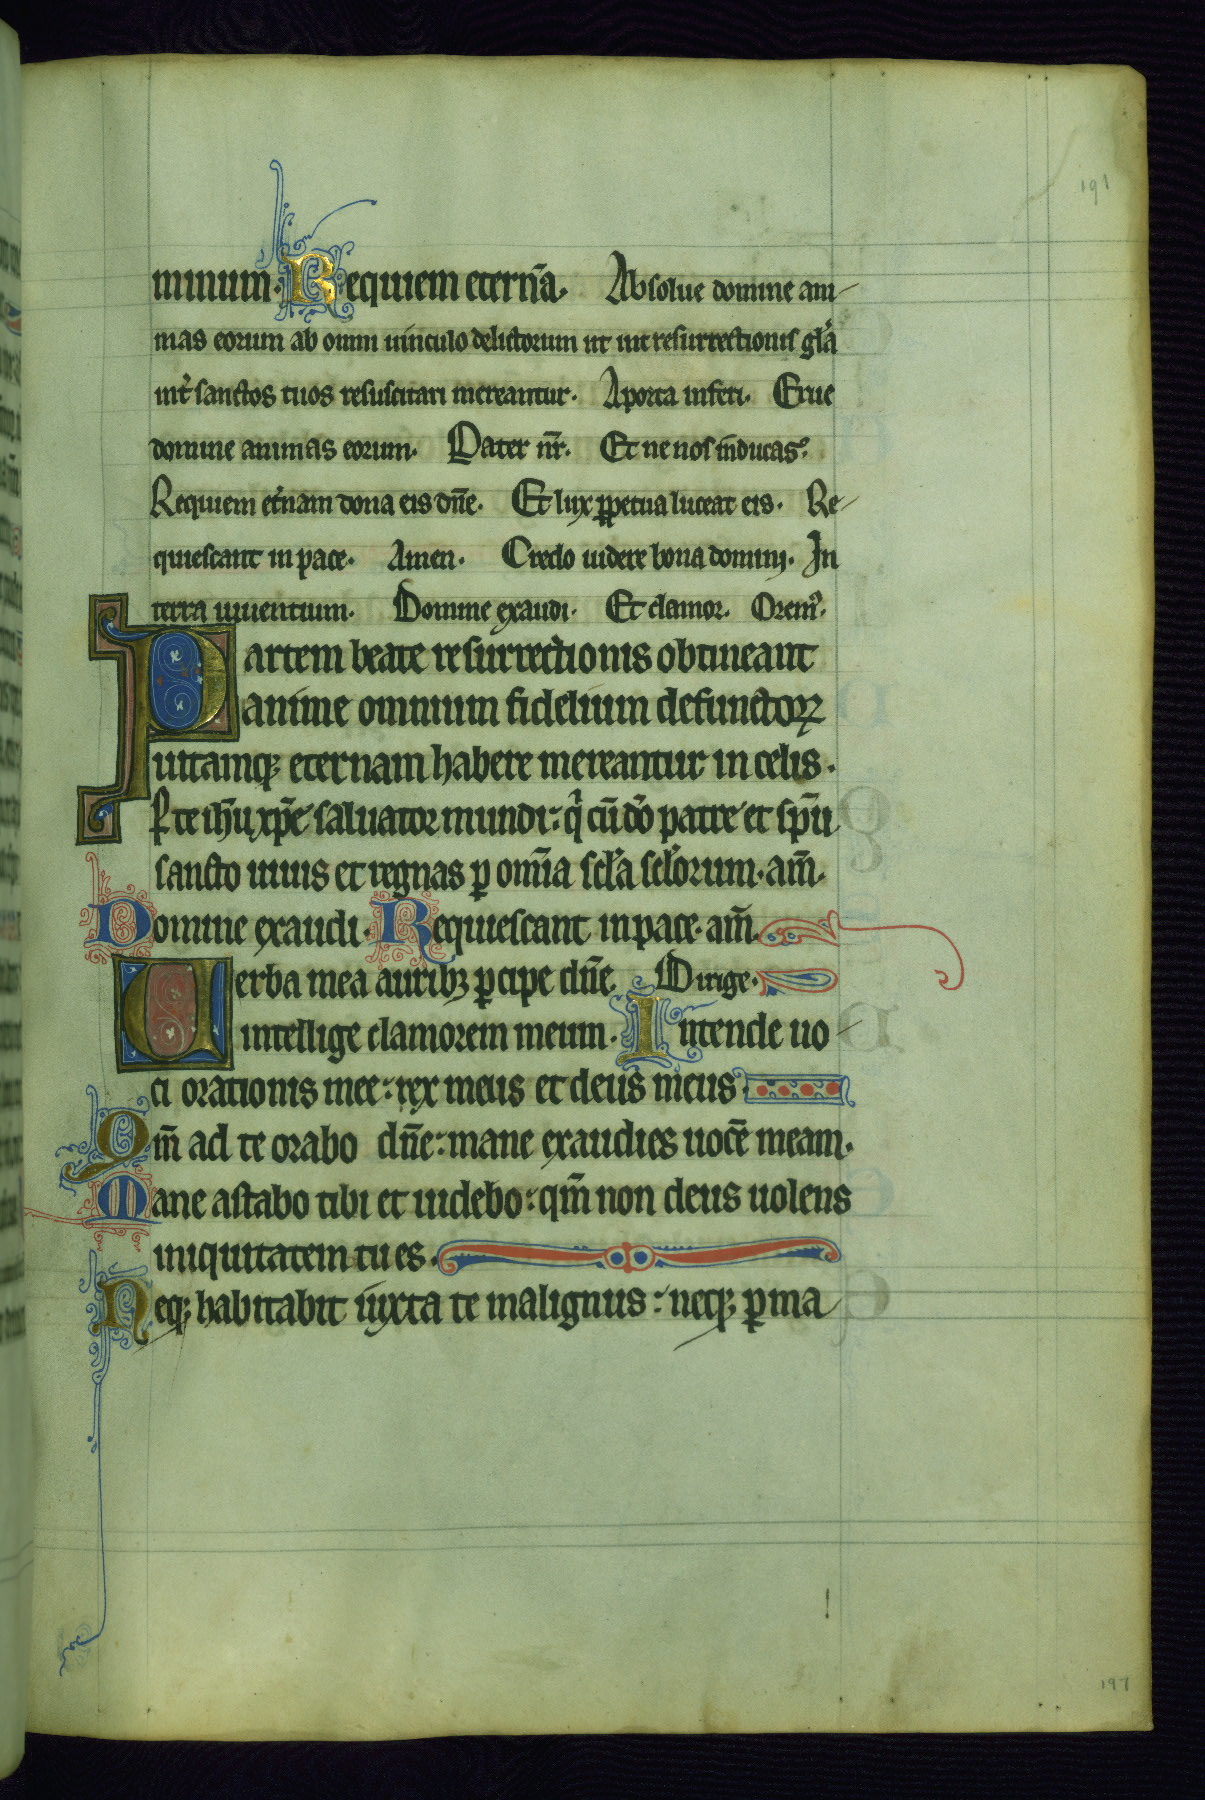 191
minum. Requiem etern̄a. Absolue domine ani
mas eorum ab omni uinculo delictorum ut in resurrectionis gl̄a
int̉ sanctos tuos resuscitari mereantur. A porta inferi. Erue
domine animas eorum. Pater nr̄. Et ne nos īnducas.
Requiem et̉nam dona eis dn̄e. Et lux ꝑpetua luceat eis. Re
quiescant in pace. Amen. Credo uidere bona domini. In
terra uiuentium. Domine exaudi. Et clamor. Orem᷒.
Partem beate resurrectionis obtineant
anime omnium fidelium defunctoꝝ
uitamqꝫ eternam habere mereantur in celis.
P̱ te ih̄u xp̄e saluator mundi: qͥ cū dō patre et sp̄u
sancto uiuis et regnas ꝑ omīa scl̄a scl̄orum. am̄.
Domine exaudi. Requiescant in pace. am̄.
Uerba mea auribꝫ ꝑcipe dn̄e. Dirige.
intellige clamorem meum. Intende uo
ci orationis mee: rex meus et deus meus
Qm̄ ad te orabo dn̄e: mane exaudies uocē meam.
Mane astabo tibi et uidebo: qm̄ non deus uolens
iniquitatem tu es.
Neqꝫ habitabit iuxta te malignus: neqꝫ ꝑma
197